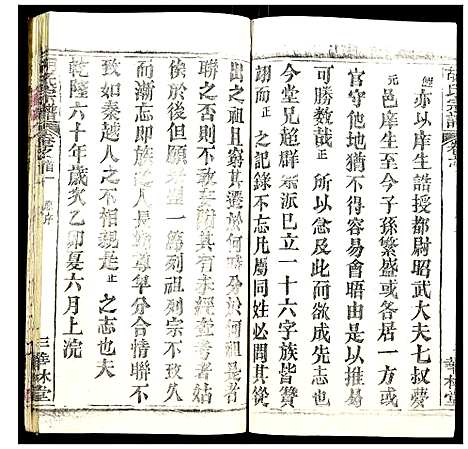 胡氏宗譜
卷之
華林堂
亦以庠生誥授都尉昭武大夫七叔夢
元邑庠生至今子孫繁盛或各居一方或
官守他地猶不得容易會晤由是以推易
可勝數哉正所以念此而欲成先志也
今堂兄超羣宗派已立一十六字族皆贊
翊而正之記錄不忘凡屬同姓必問其所從
出之祖與自遷於何時
聯之否則其有未經查考者姑
俟於後但願者置一篇列祖列宗不致久
而漸忘則族之人長幼尊卑分合情聯不
致如秦越人之不相視是正之志也夫
乾隆六十年歲次乙卯夏六月上浣
氏宗譜
卷之首
序
三
華林堂